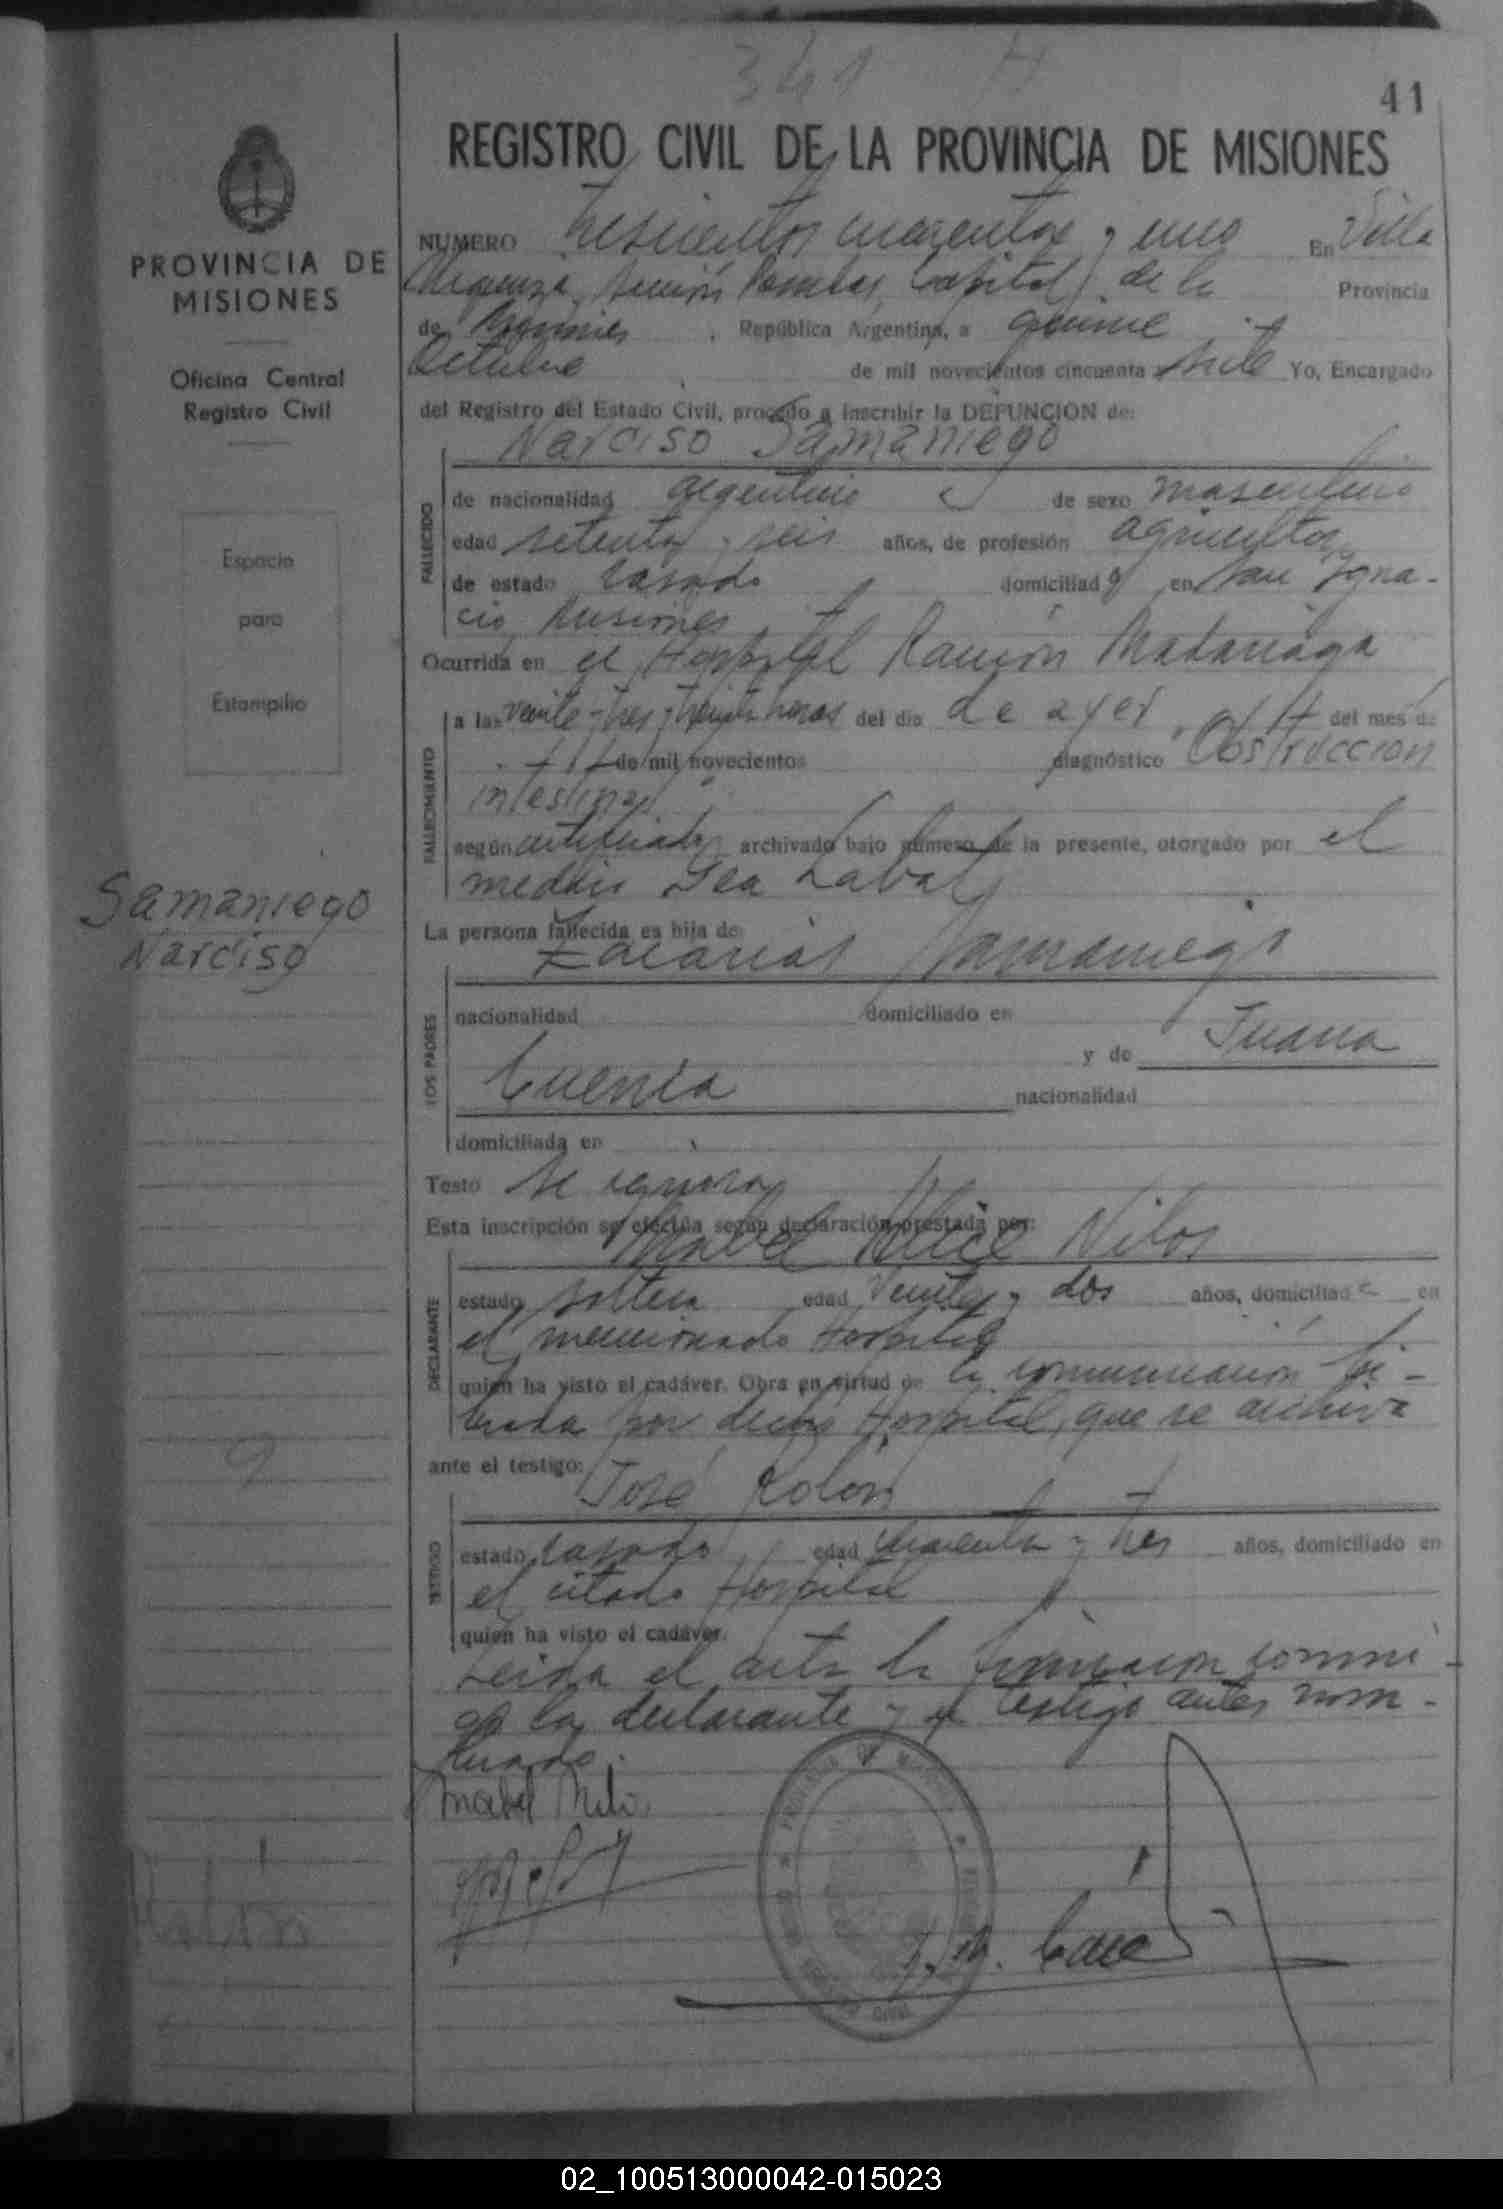 341
41
REGISTRO CIVIL DE LA PROVINCIA DE MISIONES
PROVINCIA DE
MISIONES
Oficina Central
Registro Civil
Espacio
para
Estampilla
Samaniego
Narciso
NUMERO trescientos cuarenta y uno En Villa
Urquiza, sección Capital de la Provincia
de Misiones, República Argentina, a quince
Octubre de mil novecientos cincuenta siete Yo, Encargado
del Registro del Estado Civil, procedo a inscribir la DEFUNCION de:
Narciso Samaniego
FALLECIDO
de nacionalidad argentino de sexo masculino
edad setenta y seis años, de profesión agricultor
de estado casado domiciliado en San Igna-
cio Misiones
Ocurrida en el Hospital Ramón Madariaga
FALLECIMIENTO
a las veinte-tres y treinta horas del día de ayer del mes de
de mil novecientos diagnóstico "Obstrucción
intestinal"
según certificado archivado bajo número de la presente, otorgado por el
médico Labat
La persona fallecida es hija de:
Zacarias Samaniego
LOS PADRES
nacionalidad domiciliado en
y de Juana
Cuenca nacionalidad
domiciliada en
Testó se ignora
Esta inscripción se efectúa según declaración prestada por:
Mabel Alice Nilos
DECLARANTE
estado soltera edad Veinte y dos años, domiciliada en
el mencionado Hospital
quien ha visto el cadáver. Obra en virtud de la comunicación li-
brada por dicho Hospital, que se archiva
ante el testigo:
José Rolón
TESTIGO
estado casado edad cuarenta y tres años, domiciliado en
el citado Hospital
quien ha visto el cadáver.
Leida el acta la firmaron conmi-
go la declarante y el testigo antes nom-
brado.
Mabel Nilo
02_100513000042-015023